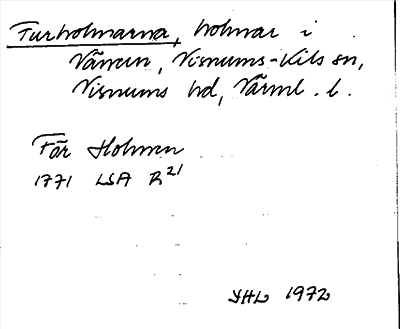 Turholmarna, holmar i
Vänern, Visnums-Kils sn,
Visnums hd, Värml. l.
Får Holmen
1771 LSA R21
YHL 1972